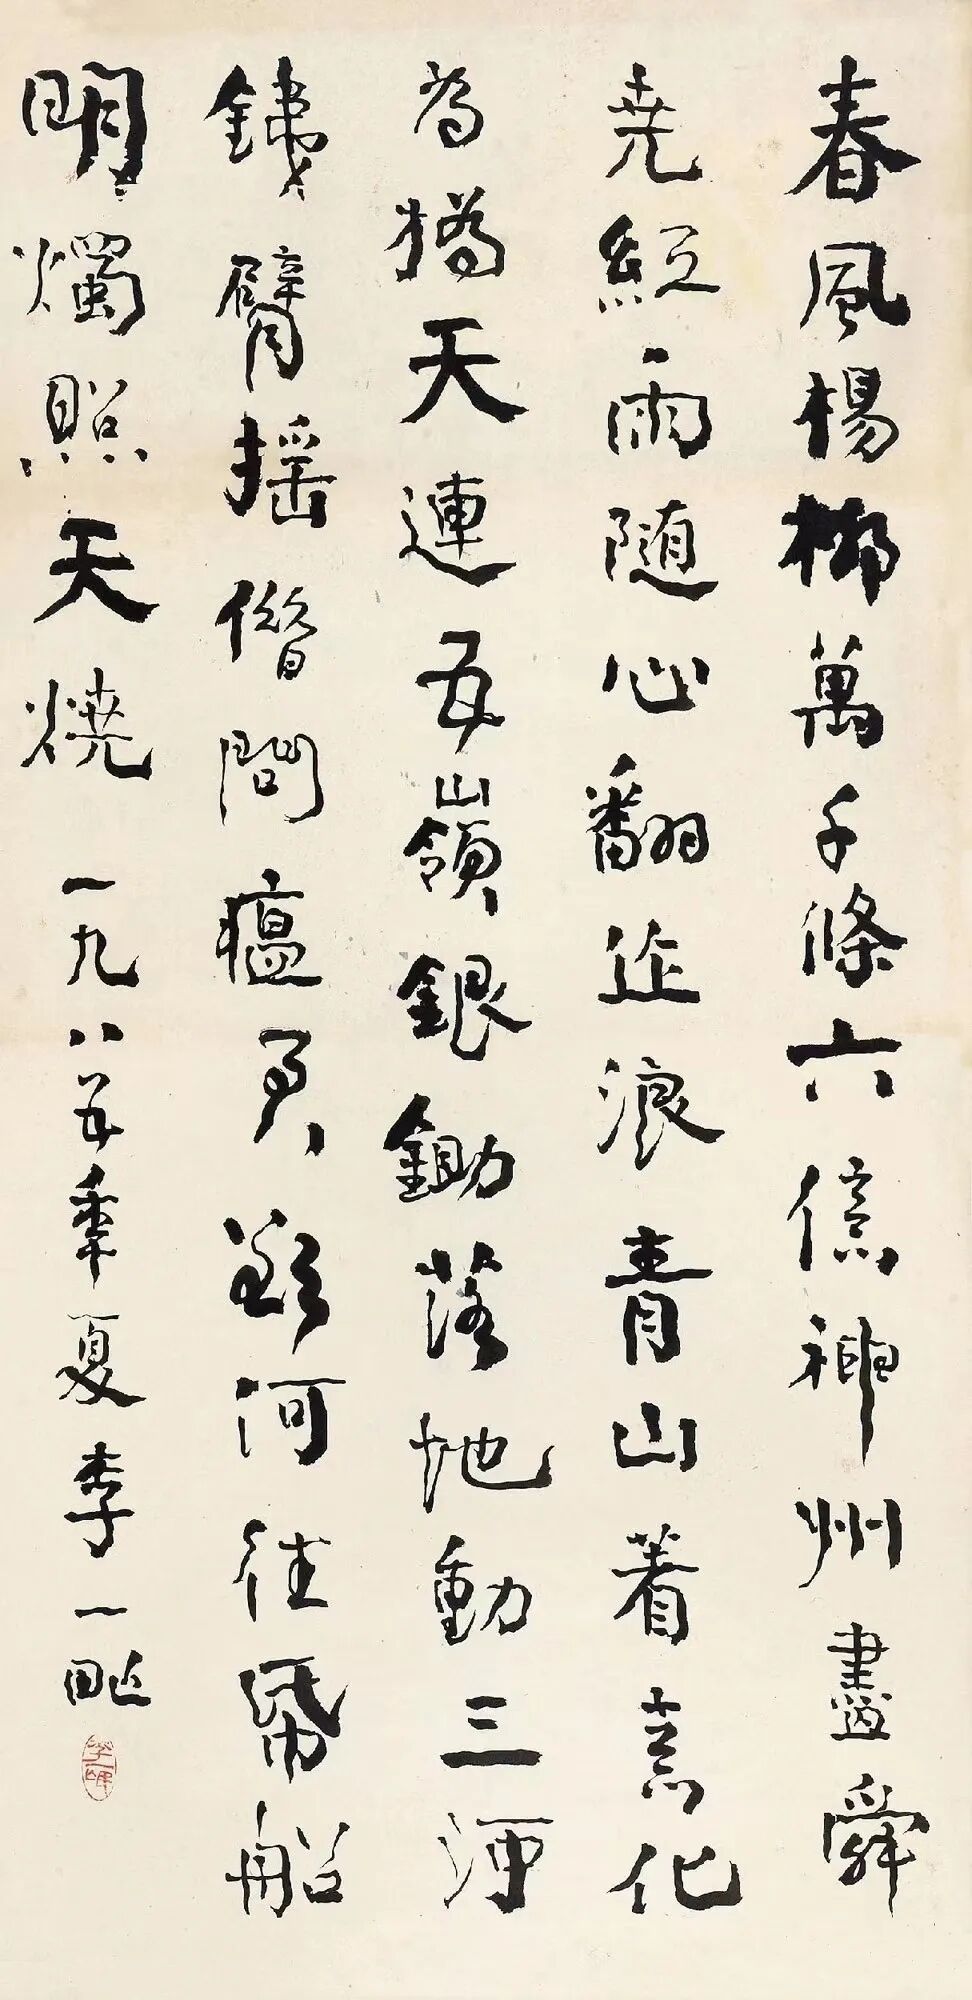 春風楊柳萬千條六億神州盡舜
堯紅雨随心翻作浪青山着意化
為橋天連五嶺銀鋤落地動三河
銕臂摇僣問瘟君欲河往帋船
明燭照天燒 一九八五年夏李一氓
李一氓